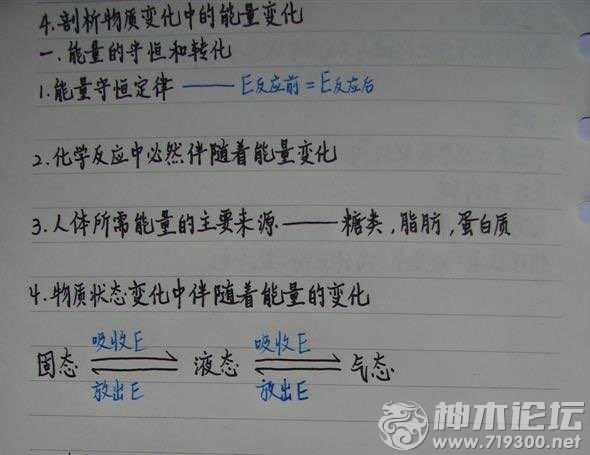 4.剖析物质变化中的能量变化
一.能量的守恒和转化
1.能量守恒定律 —— E反应前=E反应后
2.化学反应中必然伴随着能量变化
3.人体所需能量的主要来源——糖类,脂肪,蛋白质
4.物质状态变化中伴随着能量的变化
吸收E 吸收E
固态 ⇌ 液态 ⇌ 气态
放出E 放出E
神木论坛
www.719300.net